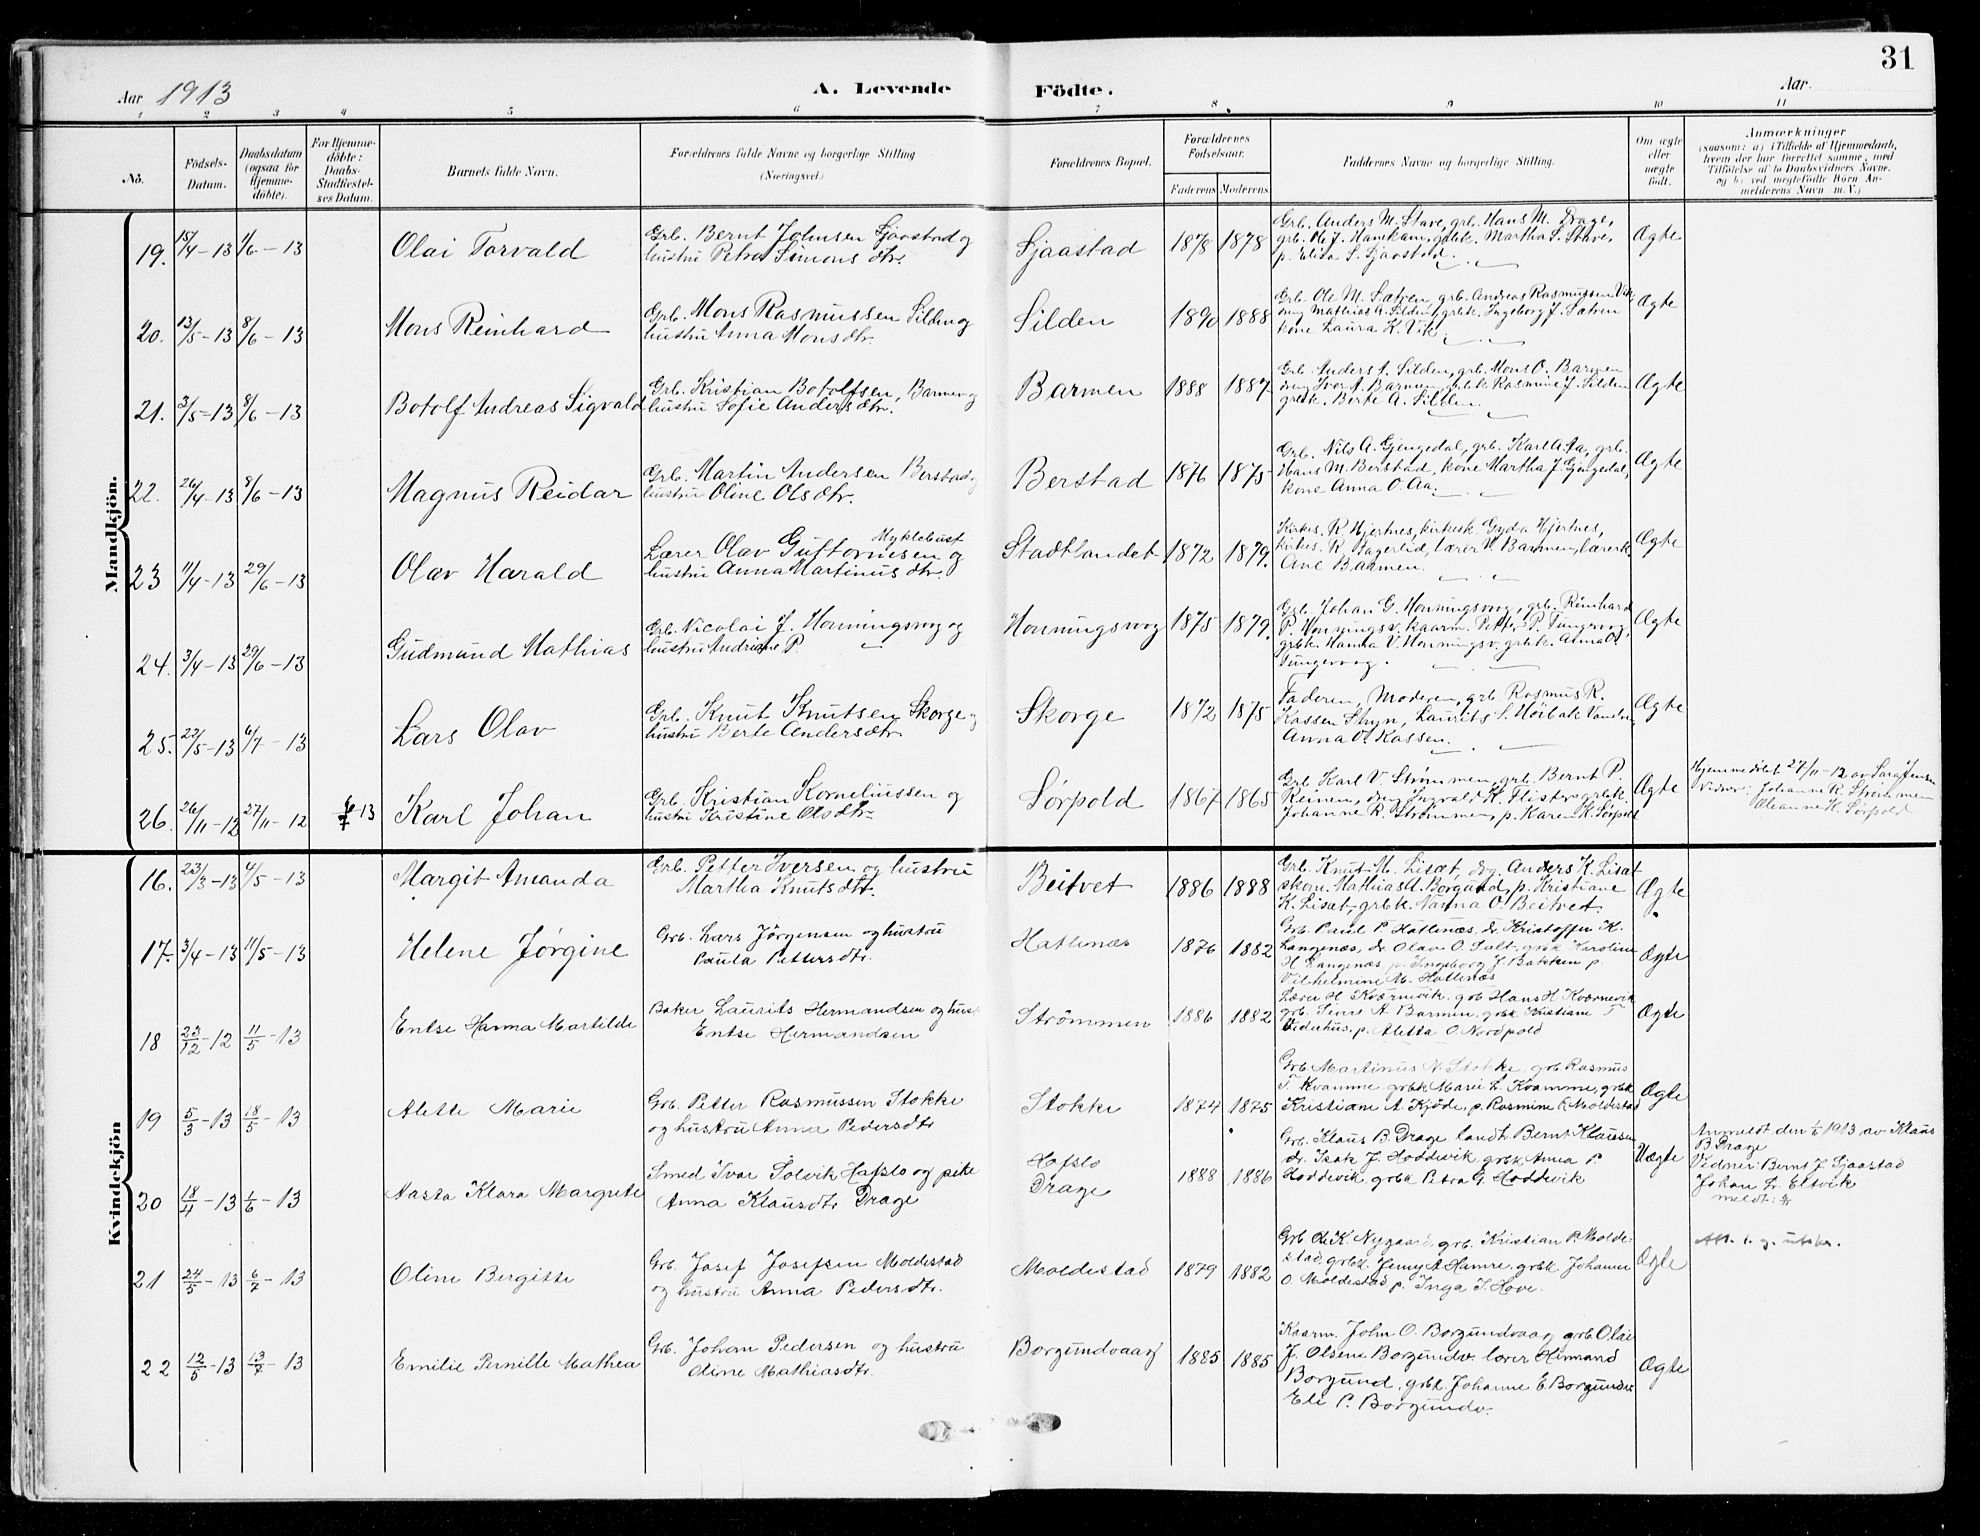 31
Aar 1913
A. Levende Födte.
Aar.
1 2 3 4 5 6 7 8 9 10 11
No.
Födsels-Datum.
Daabsdatum (ogsaa for Hjemmedöbte).
For Hjemmedöbte: Daabs-Stadfæstelses Datum.
Barnets fulde Navn.
Forældrenes fulde Navne og borgerlige Stilling (Næringsvei)
Forældrenes Bopæl.
Forældrenes Födselsaar.
Faderens Moderens
Faddernes Navne og borgerlige Stilling.
Om ægte eller uægte födt.
Anmærkninger
(saasom: a) i Tilfælde af Hjemmedaab, hvem der har forrettet samme, med Tilföielse af to Daabsvidners Navne. og b) ved uægtefödte Börn Anmelderens Navn m. V.)
Mandkjön.
19. 15/4-13 1/6-13 Olai Torvald
Grb. Bernt Johnsen Sjaastad og
hustru Petra Simonsdtr.
Sjaastad 1878 1878
Grb. Anders M. Stave, grb. Hans M. Drage,
grb. O. J. Hamkam, grbk. Martha S. Stave,
p. Elisa S. Sjaastad.
Ægte
20. 13/5-13 8/6-13 Mons Reinhard
Grb. Mons Rasmussen Silden og
hustru Anna Monsdtr.
Silden 1890 1888
Grb. Ole M. Sætren, grb. Andreas Rasmussen Vik,
ung Mathias A. Silden, grbk. Ingeborg J. Sætren
kone Laura K. Vik.
Ægte
21. 3/5-13 8/6-13 Botolf Andreas Sigvald
Grb. Kristian Botolfsen, Barmen og
hustru Sofie Andersdtr.
Barmen 1888 1887
Grb. Anders A. Silden, grb. Mons O. Barmen
ung Ivor A. Barmen, grbk. Rasmine J. Silden
grbk. Berte A. Silden.
Ægte
22. 26/4-13 8/6-13 Magnus Reidar
Grb. Martin Andersen Berstad og
hustru Oline Olsdtr.
Berstad 1876 1875
Grb. Nils A. Gjengedal, grb. Karl A. Aa, grb.
Hans M. Berstad, kone Martha J. Gjengedal,
kone Anna O. Aa.
Ægte
23 11/4-13 29/6-13 Olav Harald
Lærer Olav Guttormsen Myklebust og
hustru Anna Martinusdtr.
Stadtlandet 1872 1879.
Kirkes. R. Hjertnes, kirkesk. Gyda Hjertnes,
kirkes. R. Fagerlid, lærer V. Barmen, lærerk.
Ane Barmen.
Ægte
24. 3/4-13 29/6-13 Gudmund Mathias
Grb. Nicolai J. Honningsvog og
hustru Andriane P.
Honningsvog 1875 1879.
Grb. Johan G. Honningsvog, grb. Reinhard
P. Honningsv. kaarm. Petter P. Tungevog,
grbk. Hanna V. Honningsv. grbk. Anna O.
Tungevog.
Ægte
25. 23/5-13 6/7-13 Lars Olav
Grb. Knut Knutsen Skorge og
hustru Berte Andersdtr.
Skorge 1872 1875
Faderen, Moderen, grb. Rasmus R.
Kassen Stryn, Laurits S. Höibak
Anna O. Kassen.
Ægte
26. 26/11-12 27/11-12 6/7 13 Karl Johan
Grb. Kristian Korneliussen og
hustru Kristine Olsdtr.
Sörpold 1867 1865
Grb. Karl V. Strömmen, grb. Bernt P.
Reinen, ung Ingvald K. Flister, grbk.
Johanne R. Strömmen, p. Karen K. Sörpold
Ægte
Hjemmedöbt 27/11-12 av Sara Jensen
Vidner: Johanne R. Strömmen
Oleanne K. Sörpold
Kvindekjön
16. 23/3-13 4/5-13 Margit Amanda
Grb. Petter Iversen og hustru
Martha Knutsdtr.
Beitvet 1886 1888
Grb. Knut M. Lisæt, dg. Anders K. Lisæt
skom. Mathias A. Borgund, p. Kristiane
K. Lisæt, grbk. Nanna O. Beitvet.
Ægte
17. 3/4-13 11/5-13 Helene Jörgine
Grb. Lars Jörgensen og hustru
Paula Pettersdtr.
Hatlenæs 1876 1882
Grb. Paul P. Hatlenæs, dr. Kristoffer K.
Langenæs, dr. Olav O. Salt, grbk Karoline
H. Langenæs p. Ingeborg J. Bakken p.
Vilhelmine M. Hatlenæs
Ægte
18 23/12-12 11/5-13 Entse Hanna Martilde
Baker Laurits Hermandsen og hust
Entse Hermandsen
Strömmen 1886 1882
Lærer H. Kværnevik, grb Hans H Kværnevik
grb. Sivert A Barmen, grbk Kristiane T
Vederhus, p. Aletta O. Nordpold
Ægte
19 5/3-13 18/5-13 Alette Marie
Grb. Petter Rasmussen Stokke
og hustru Anna Pedersdtr
Stokke 1874 1875
Grb Martinus N Stokke, grb Rasmus
T. Kvamme, grbk Marie L. Kvamme, grbk
Kristiane A Kjöde, p. Rasmine R. Moldestad
Ægte
20 18/4-13 1/6-13 Aasta Klara Margrete
Smed Ivar Solvik Hafslo og pike
Anna Klausdtr Drage
Hafslo
Drage
1888 1886
Grb. Klaus B. Drage landh. Bernt Klaussen
dr. Isak J. Hoddevik, grbk Anna P.
Hoddevik, grbk Petra G. Hoddevik
Uægte
Anmeldt den 1/6 1913 av Klaus
B Drage
Vidner: Bernt J Sjaastad
Johan L. Eltvik
meldt:
21 24/5-13 6/7-13 Oline Bergitte
Grb. Josef Josefsen Moldestad
og hustru Anna Pedersdtr.
Moldestad 1879 1882
Grb Ole K. Nygaard, grb. Kristian P. Molde-
stad, grbk Jenny A Hamre, grbk Johanne
O. Moldestad p. Inga I. Hove.
Ægte
22 12/5-13 13/7-13 Emilie Pernille Mathea
Grb. Johan Pedersen og hustru
Oline Mathiasdtr.
Borgundvaag 1885 1885
Kaarm. John O. Borgundvaag grb Olai
J. Olsens Borgundv. lærer Hermand
Borgund, grbk. Johanne E. Borgundv
Eli P. Borgundv.
Ægte